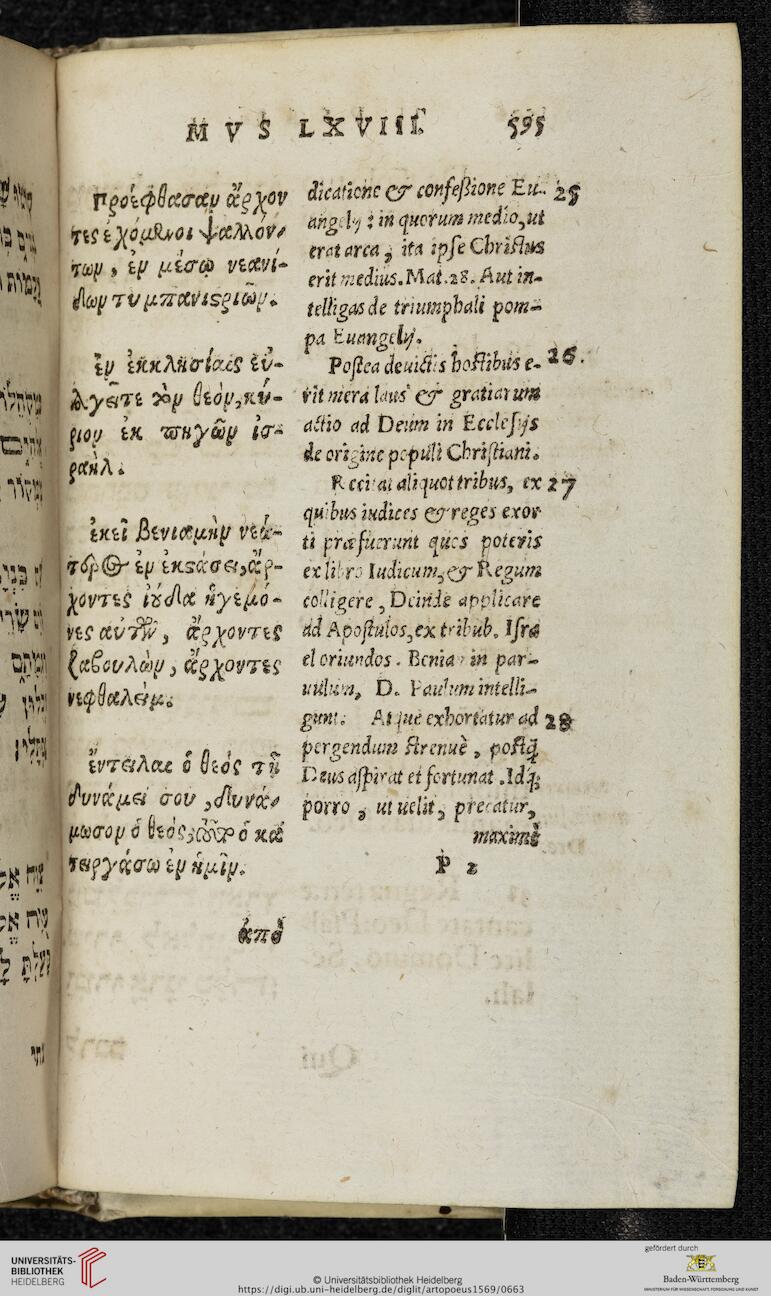 MVS LXVIII. 595
Προέφθασαν ἄρχον
τες ἐχόμενοι ψαλλόν-
των, ἐν μέσῳ νεανί-
δων τυμπανιστριῶν.
ἐν ἐκκλησίαις εὐ-
λογεῖτε τὸν θεόν, κύ-
ριον ἐκ πηγῶν ἰσ-
ραήλ.
ἐκεῖ βενιαμὴν νεώ-
τερος ἐν ἐκστάσει, ἄρ-
χοντες ἰούδα ἡγεμό-
νες αὐτῶν, ἄρχοντες
ζαβουλὼν, ἄρχοντες
νεφθαλείμ.
ἔντειλαι ὁ θεός τῇ
δυνάμει σου, δυνά-
μωσον ὁ θεός, τοῦτο ὁ κα
τειργάσω ἐν ἡμῖν.
ἀπὸ
dicatione & confeßione Eu- 25
angelij: in quorum medio, ut
erat arca, ita ipse Christus
erit medius. Mat. 28. Aut in-
telligas de triumphali pom-
pa Euangelij.
Postea deuictis hostibus e- 26.
rit mera laus & gratiarum
actio ad Deum in Ecclesijs
de origine populi Christiani.
Recitat aliquot tribus, ex 27
quibus iudices & reges exor
ti præfuerunt quos poteris
ex libro Iudicum, & Regum
colligere, Deinde applicare
ad Apostulos, ex tribub. Isra
el oriundos. Beniamin par-
uulum, D. Paulum intelli-
gunt. Atque exhortatur ad 28
pergendum strenuè, postq́;
Deus aspirat et fortunat. Idq́;
porro, ut uelit, precatur,
maximè
P 2
UNIVERSITÄTS-
BIBLIOTHEK
HEIDELBERG
© Universitätsbibliothek Heidelberg
https://digi.ub.uni-heidelberg.de/diglit/artopoeus1569/0663
gefördert durch
Baden-Württemberg
MINISTERIUM FÜR WISSENSCHAFT, FORSCHUNG UND KUNST